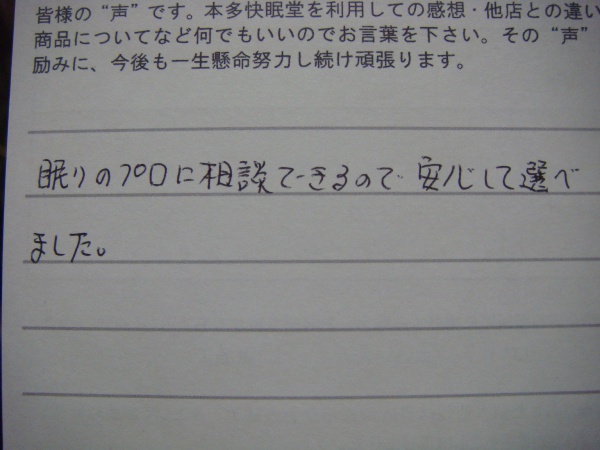 皆様の“声”です。本多快眠堂を利用しての感想・他店との違い
商品についてなど何でもいいのでお言葉を下さい。その“声”
励みに、今後も一生懸命努力し続け頑張ります。
眠りのプロに相談できるので安心して選べ
ました。